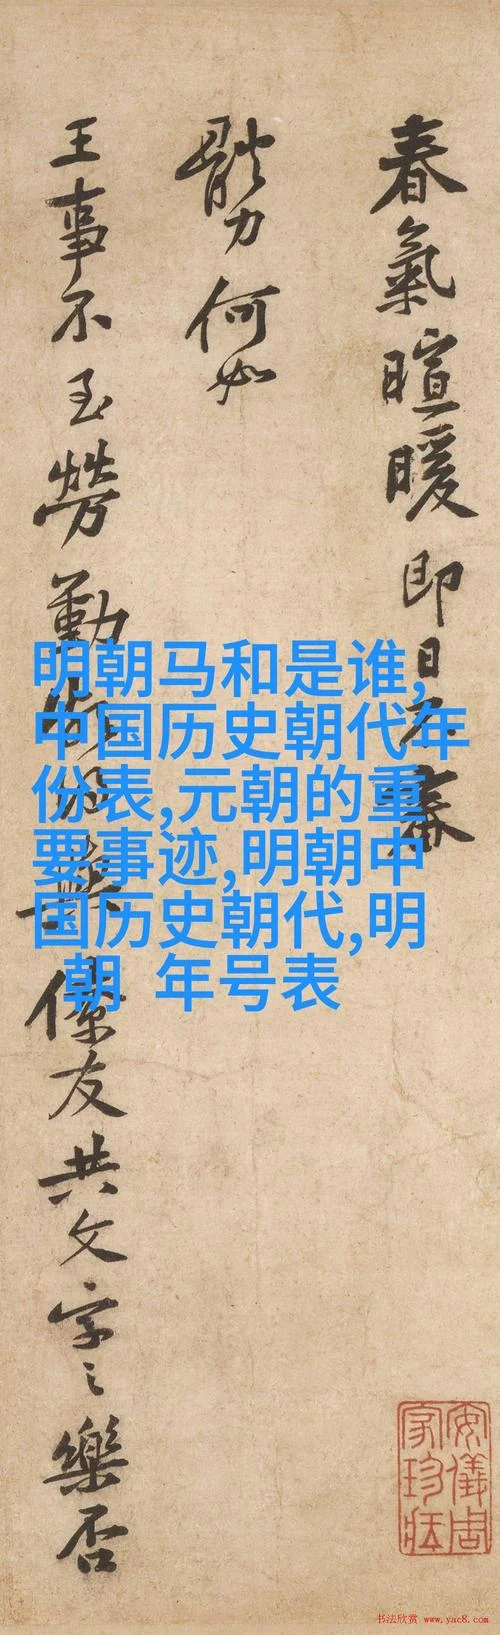 春氣暄暖即日不審
體力何如
王事不至勞勤頗得與僚友共文字之樂否
明朝马和是谁,
中国历史朝代年
份表,元朝的重
要事迹,明朝中
国历史朝代,明
朝 年号表
安儀周
家珍藏
书法欣赏 www.yac8.com